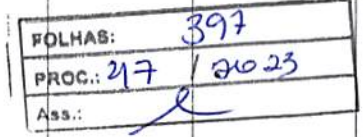 FOLHAS: 397
PROC.: 47 / 2023
Ass.: